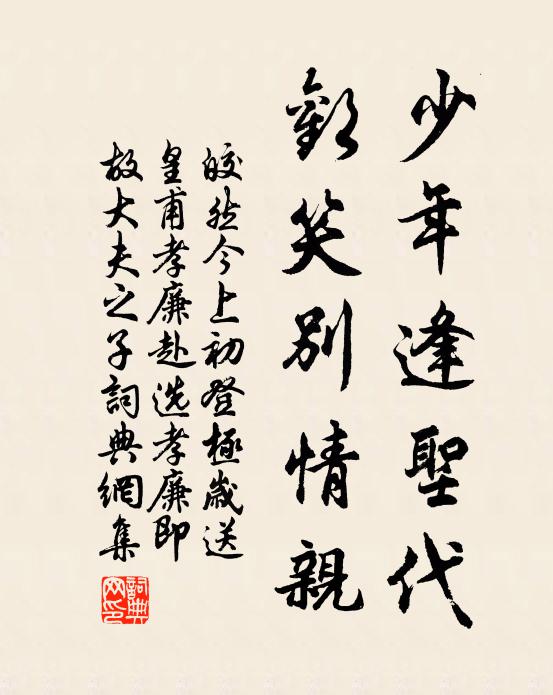 少年逢聖代
歡笑別情親
皎然今上初登極歲送
皇甫孝廉赴选孝廉即
故大夫之子詞典網集
詞典网印